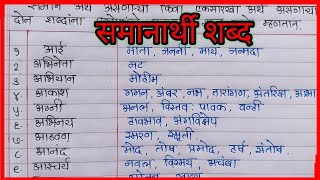 समान अर्थ असणाऱ्या किंवा एकसारखा अर्थ असणाऱ्या
दोन शब्दांना समानार्थी शब्द म्हणतात.
१ आई माता, जननी, माय, जन्मदा
२ अभिनेता नट
३ अभियान मोहीम
४ आकाश गगन, अंबर, नभ, तारांगण, अंतरिक्ष, आभा
५ अग्नी अनल, विस्तव, पावक, वन्ही
६ अभिनय हावभाव, अंगविक्षेप
७ आठवण स्मरण, स्मृती
८ आनंद मोद, तोष, प्रमोद, हर्ष, संतोष
९ आश्चर्य नवल, विस्मय, अचंबा